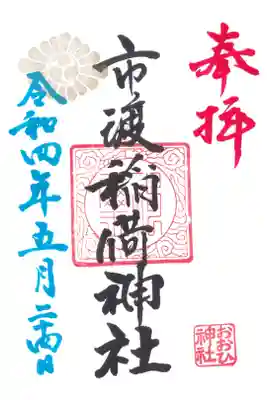 奉拝
市渡稲荷神社
令和四年五月二十四日
おおひ
神社